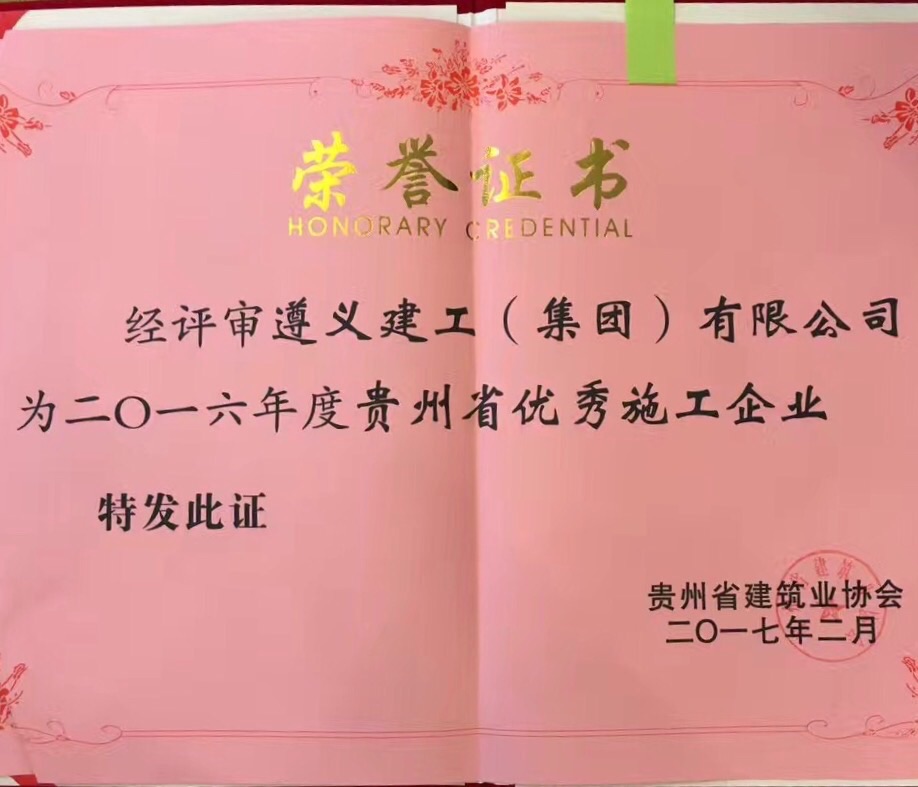 荣誉证书
HONORARY CREDENTIAL
经评审遵义建工（集团）有限公司
为二〇一六年度贵州省优秀施工企业
特发此证
贵州省建筑业协会
二〇一七年二月